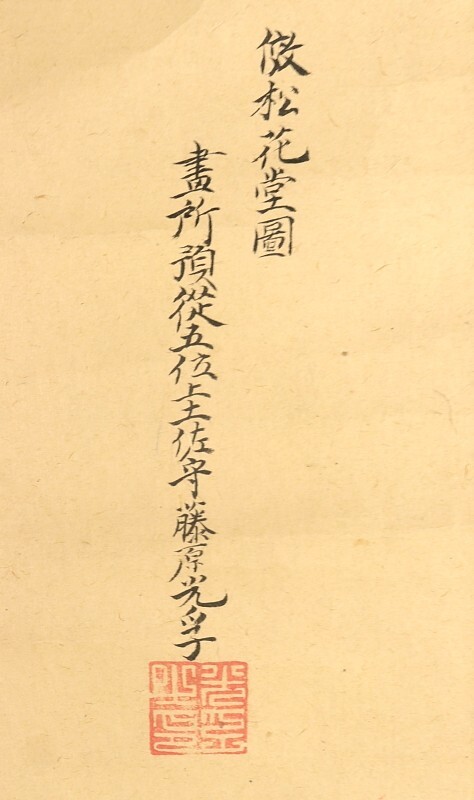 倣松花堂圖
畫所預從五位上土佐守藤原光孚